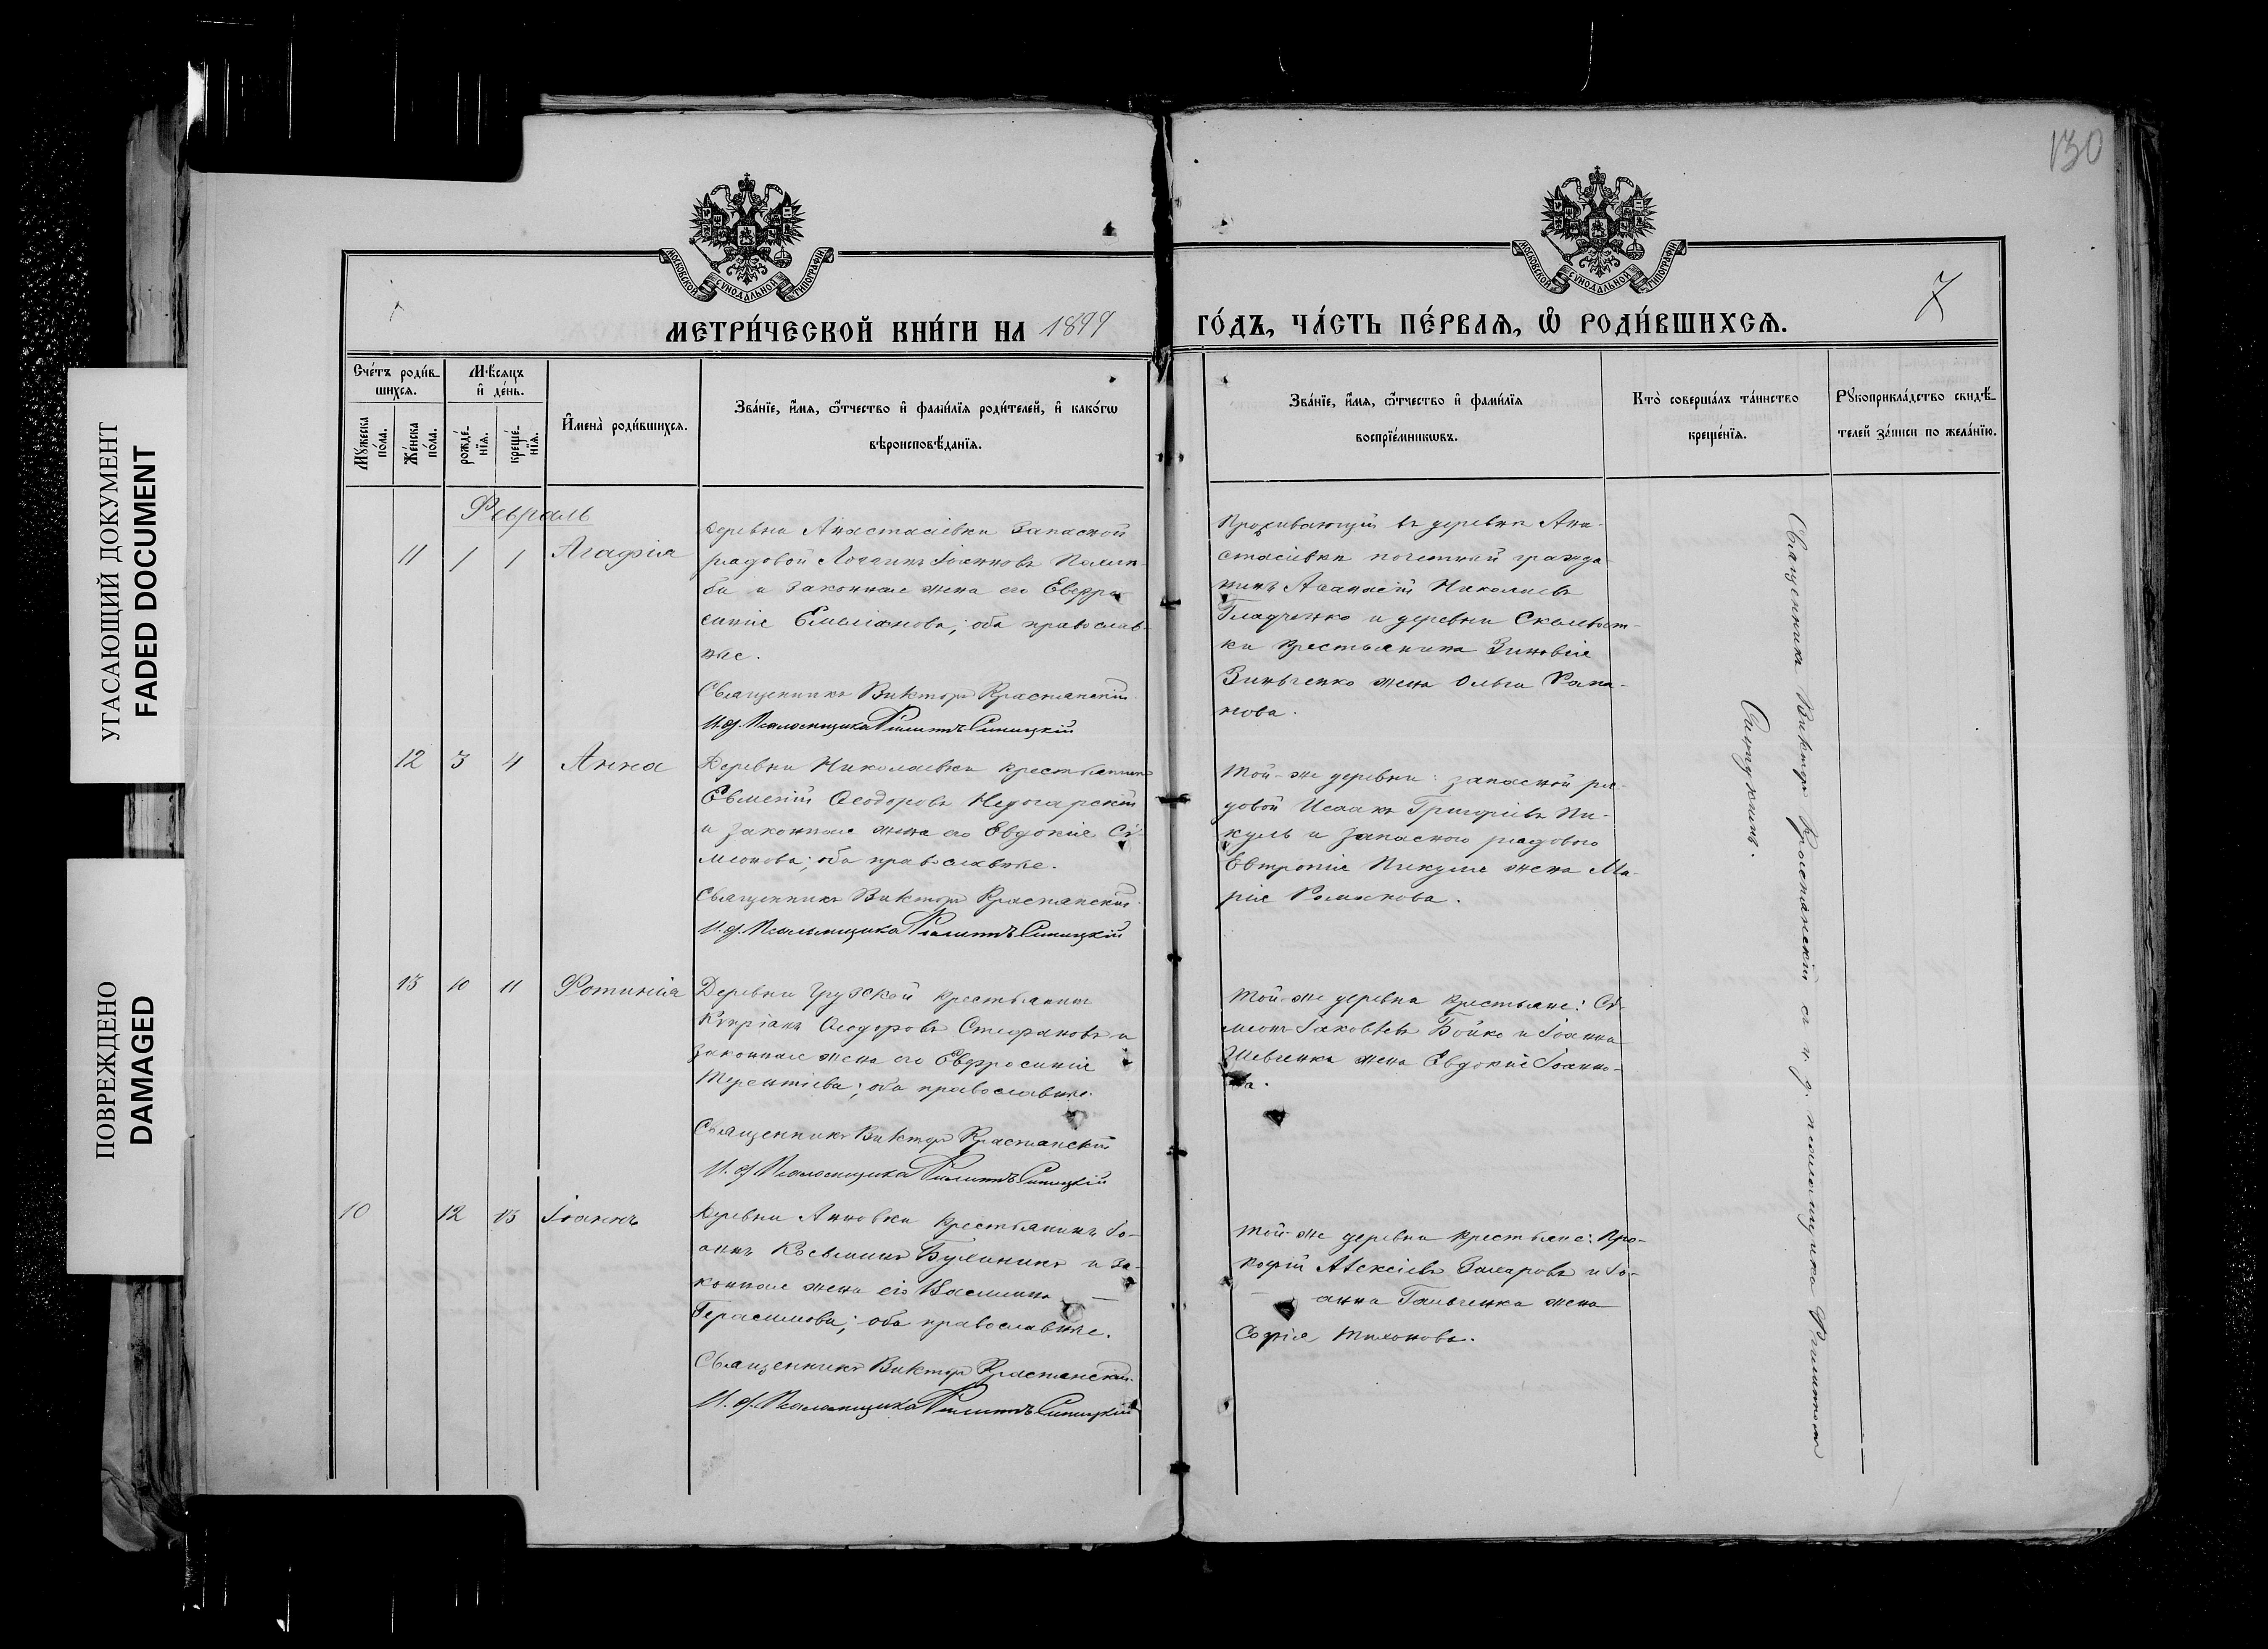 130
УГАСАЮЩИЙ ДОКУМЕНТ
FADED DOCUMENT
ПОВРЕЖДЕНО
DAMAGED
МОСКОВСКОЙ СУНОДАЛЬНОЙ ТИПОГРАФІИ
МОСКОВСКОЙ СУНОДАЛЬНОЙ ТИПОГРАФІИ
7
МЕТРИ́ЧЕСКОЙ КНИ́ГИ НА 1899
ГО́ДЪ, ЧА́СТЬ ПЕ́РВАЯ, Ѡ РОДИ́ВШИХСЯ.
Сче́тъ роди́в-
шихся.
Мꙋжеска по́ла.
Же́нска по́ла.
Мѣ́сяцъ
и҆ де́нь.
рожде́-
нїя.
креще́-
нїя.
И҆мена̀ роди́вшихся.
Зва́нїе, и҆́мя, ѻ҆́тчество и҆ фами́лїя роди́телей, и҆ како́гѡ
вѣроисповѣ́данїя.
Зва́нїе, и҆́мя, ѻ҆́тчество и҆ фами́лїя
воспрїе́мникѡвъ.
Кто̀ соверша́лъ та́инство
креще́нїя.
Рꙋкоприкла́дство свидѣ́-
телей за́писи по жела́нїю.
Февраль
11 1 1 Агафія
Деревни Анастасіевки Запасной
рядовой Іоаннъ Іоанновъ
и законная жена его Евфро-
синія Емеліанова; оба православ-
ные.
Священникъ Викторъ Крыжановскій
И. д. Псаломщика Филиппъ Синицкій
Проживающій въ деревнѣ Ана-
стасіевки почетный гражда-
нинъ Аѳанасій Николаевъ
Гладченко и деревни
ки крестьянина Зиновія
Зинченко жена Ольга Рома-
нова.
12 3 4 Анна
Деревни Николаевки крестьянинъ
Евменій Ѳеодоровъ
и законная жена его Евдокія Сѵ-
меонова; оба православные.
Священникъ Викторъ Крыжановскій
И. д. Псаломщика Филиппъ Синицкій
Той-же деревни: запасной ря-
довой Исаакъ Григоріевъ Пи-
куль и запасного рядового
Евтропія Пикуля жена Ма-
рія Романова.
13 10 11 Фотинія
Деревни Грузской крестьянинъ
Кѵпріанъ Ѳеодоровъ Стефановъ и
законная жена его Евфросинія
Терентіева; оба православные.
Священникъ Викторъ Крыжановскій
И. д. Псаломщика Филиппъ Синицкій
Той-же деревни крестьяне: Сѵ-
меонъ Іаковлевъ Бойко и Іоанна
Шевченка жена Евдокія Іоанно-
ва.
10 12 13 Іоаннъ
Деревни Анновки крестьянинъ Іо-
аннъ Косьминъ и за-
конная жена его Василина
Герасимова; оба православные.
Священникъ Викторъ Крыжановскій
И. д. Псаломщика Филиппъ Синицкій
Той-же деревни крестьяне: Про-
кофій Алексіевъ Захаровъ и Іо-
анна жена
Софія Тихонова.
Священникъ Викторъ Крыжановскій съ и. д. псаломщика Филиппомъ
Синицкимъ.